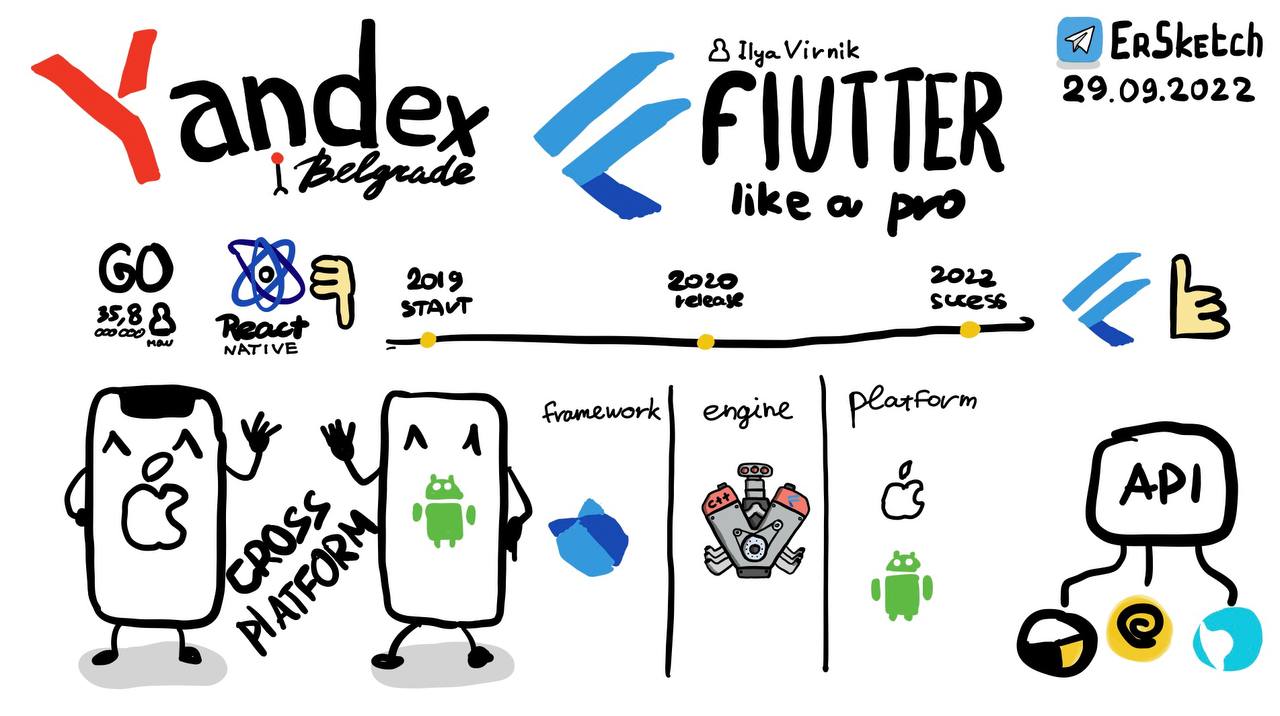 Yandex
Belgrade
Ilya Virnik
FlUTTER
like a pro
ErSketch
29.09.2022
GO
35,8
000 000
MAU
React
NATIVE
2019
START
2020
release
2022
sccess
CROSS
PlATFORM
framework
engine
platform
C++
API